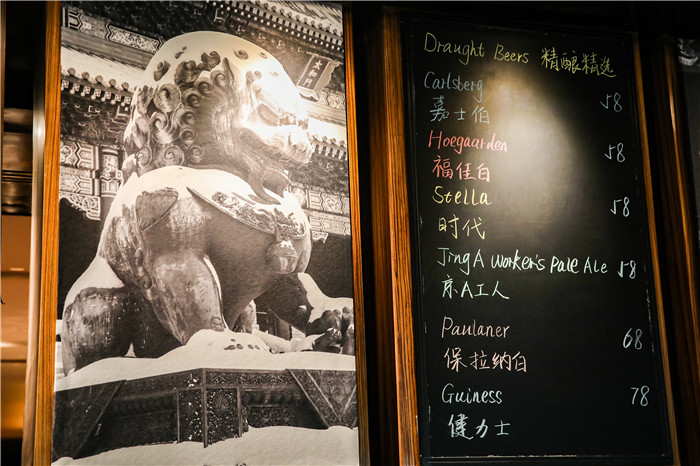 Draught Beers 精酿精选
Carlsberg 58
嘉士伯
Hoegaarden 58
福佳白
Stella 58
时代
Jing A Worker's Pale Ale 58
京A工人
Paulaner 68
保拉纳白
Guiness 78
健力士